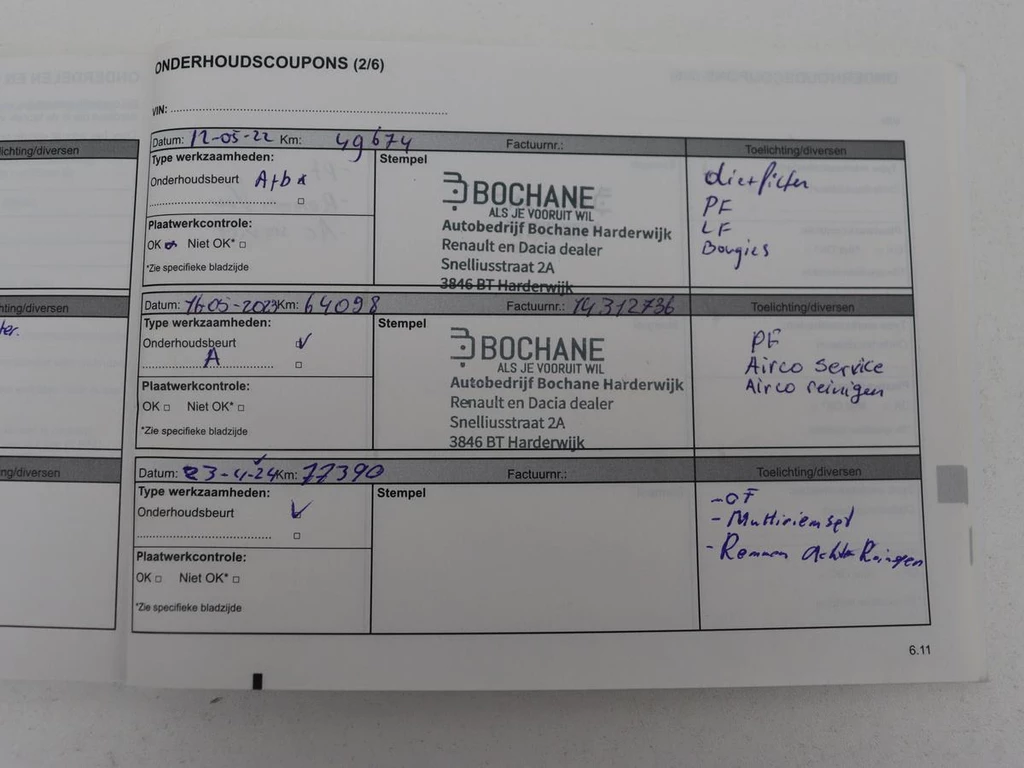 ONDERHOUDSCOUPONS (2/6)
VIN:
Datum: 12-05-22 Km: 49674 Factuurnr.: Toelichting/diversen
Type werkzaamheden:
Onderhoudsbeurt A+b
Plaatwerkcontrole:
OK Niet OK*
*Zie specifieke bladzijde
Stempel
BOCHANE
ALS JE VOORUIT WIL
Autobedrijf Bochane Harderwijk
Renault en Dacia dealer
Snelliusstraat 2A
3846 BT Harderwijk
PF
LF
Bougies
Datum: 16-05-2023 Km: 64098 Factuurnr.: 14312736 Toelichting/diversen
Type werkzaamheden:
Onderhoudsbeurt
A
Plaatwerkcontrole:
OK Niet OK*
*Zie specifieke bladzijde
Stempel
BOCHANE
ALS JE VOORUIT WIL
Autobedrijf Bochane Harderwijk
Renault en Dacia dealer
Snelliusstraat 2A
3846 BT Harderwijk
PF
Airco service
Airco reinigen
Datum: 23-4-24 Km: 77390 Factuurnr.: Toelichting/diversen
Type werkzaamheden:
Onderhoudsbeurt
Plaatwerkcontrole:
OK Niet OK*
*Zie specifieke bladzijde
Stempel
-OF
- Multiriemset
- Remmen achter Reinigen
6.11
lichting/diversen
hting/diversen
ter.
ng/diversen